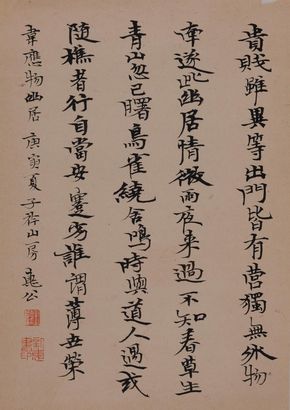 貴賤雖異等出門皆有營獨無外物
牽遂此幽居情微雨夜來過不知春草生
青山忽已曙鳥雀繞舍鳴時與道人遇或
隨樵者行自當安蹇劣誰謂薄世榮
韋應物幽居 庚寅夏子山房 公